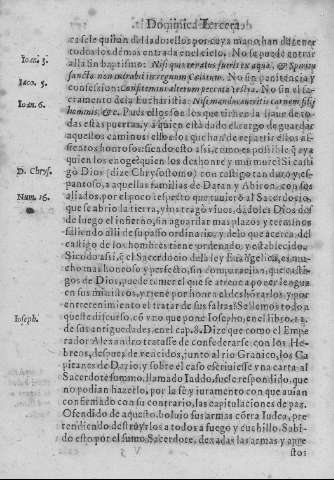 Dominica Tercera
todos los demas entrada en el cielo. No se puede entrar
Ioan. 3.
alla sin baptismo: Nisi quis renatus fuerit ex aqua, & Spiritu
sancto non intrabit in regnum Cælorum. No sin penitencia y
Iaco. 5.
confession: Confitemini alterum peccata vestra. No sin el sa-
Ioan. 6.
cramento de la Eucharistia: Nisi manducaueritis carnem filij
hominis, &c. Pues ellos son los que tienen la llaue de to-
das estas puertas, y a quien està dado el cargo de guardar
aquellos caminos: ellos los que han de repartir ellos as-
sientos honrosos: siendo esto assi, como es possible q̃ aya
quien los enoge? quien los deshonre y murmure? Si casti
D. Chrys.
go Dios (dize Chrysostomo) con castigo tan duro y es-
pantoso, a aquellas familias de Datan y Abiron, con sus
Num. 16.
aliados, por el poco respecto que tuuierõ al Sacerdocio,
que se abrio la tierra, y los tragò viuos, dãdoles Dios des
de luego el infierno, sin aguardar mas plazos y terminos
saliendo alli de su passo ordinario, y de lo que acerca del
castigo de los hombres tiene ordenado, y establecido.
Siẽdo assi, q̃ el Sacerdocio de la ley Euãgelica, es mu-
cho mas honroso y perfecto, sin comparacion, que casti-
gos de Dios, puede temer el que se atreue a poner lengua
en sus ministros, y tiene por honra el deshonrarlos, y por
entretenimiento el tratar de sus faltas? Sellemos todo a
Ioseph.
queste discurso, cõ vno que pone Iosepho, en el libro. 11.
de sus antiguedades, en el cap. 8. Dize que como el Empe
rador Alexandro tratasse de confederarse con los He-
breos, despues de vencidos, junto al rio Granico, los Ca
pitanes de Dario, y sobre el caso escriuiesse vna carta al
Sacerdote summo, llamado Iaddo, fuele respondido, que
no podian hazerlo, por la fè y iuramento con que auian
confirmado con su contrario, las capitulaciones de paz.
Ofendido de aquesto, boluio sus armas côtra Iudea, pre
tendiendo destroyrlos a todos a fuego y cuchillo. Sabi-
do esto por el sumo Sacerdote, dexadas las armas y apre
stos